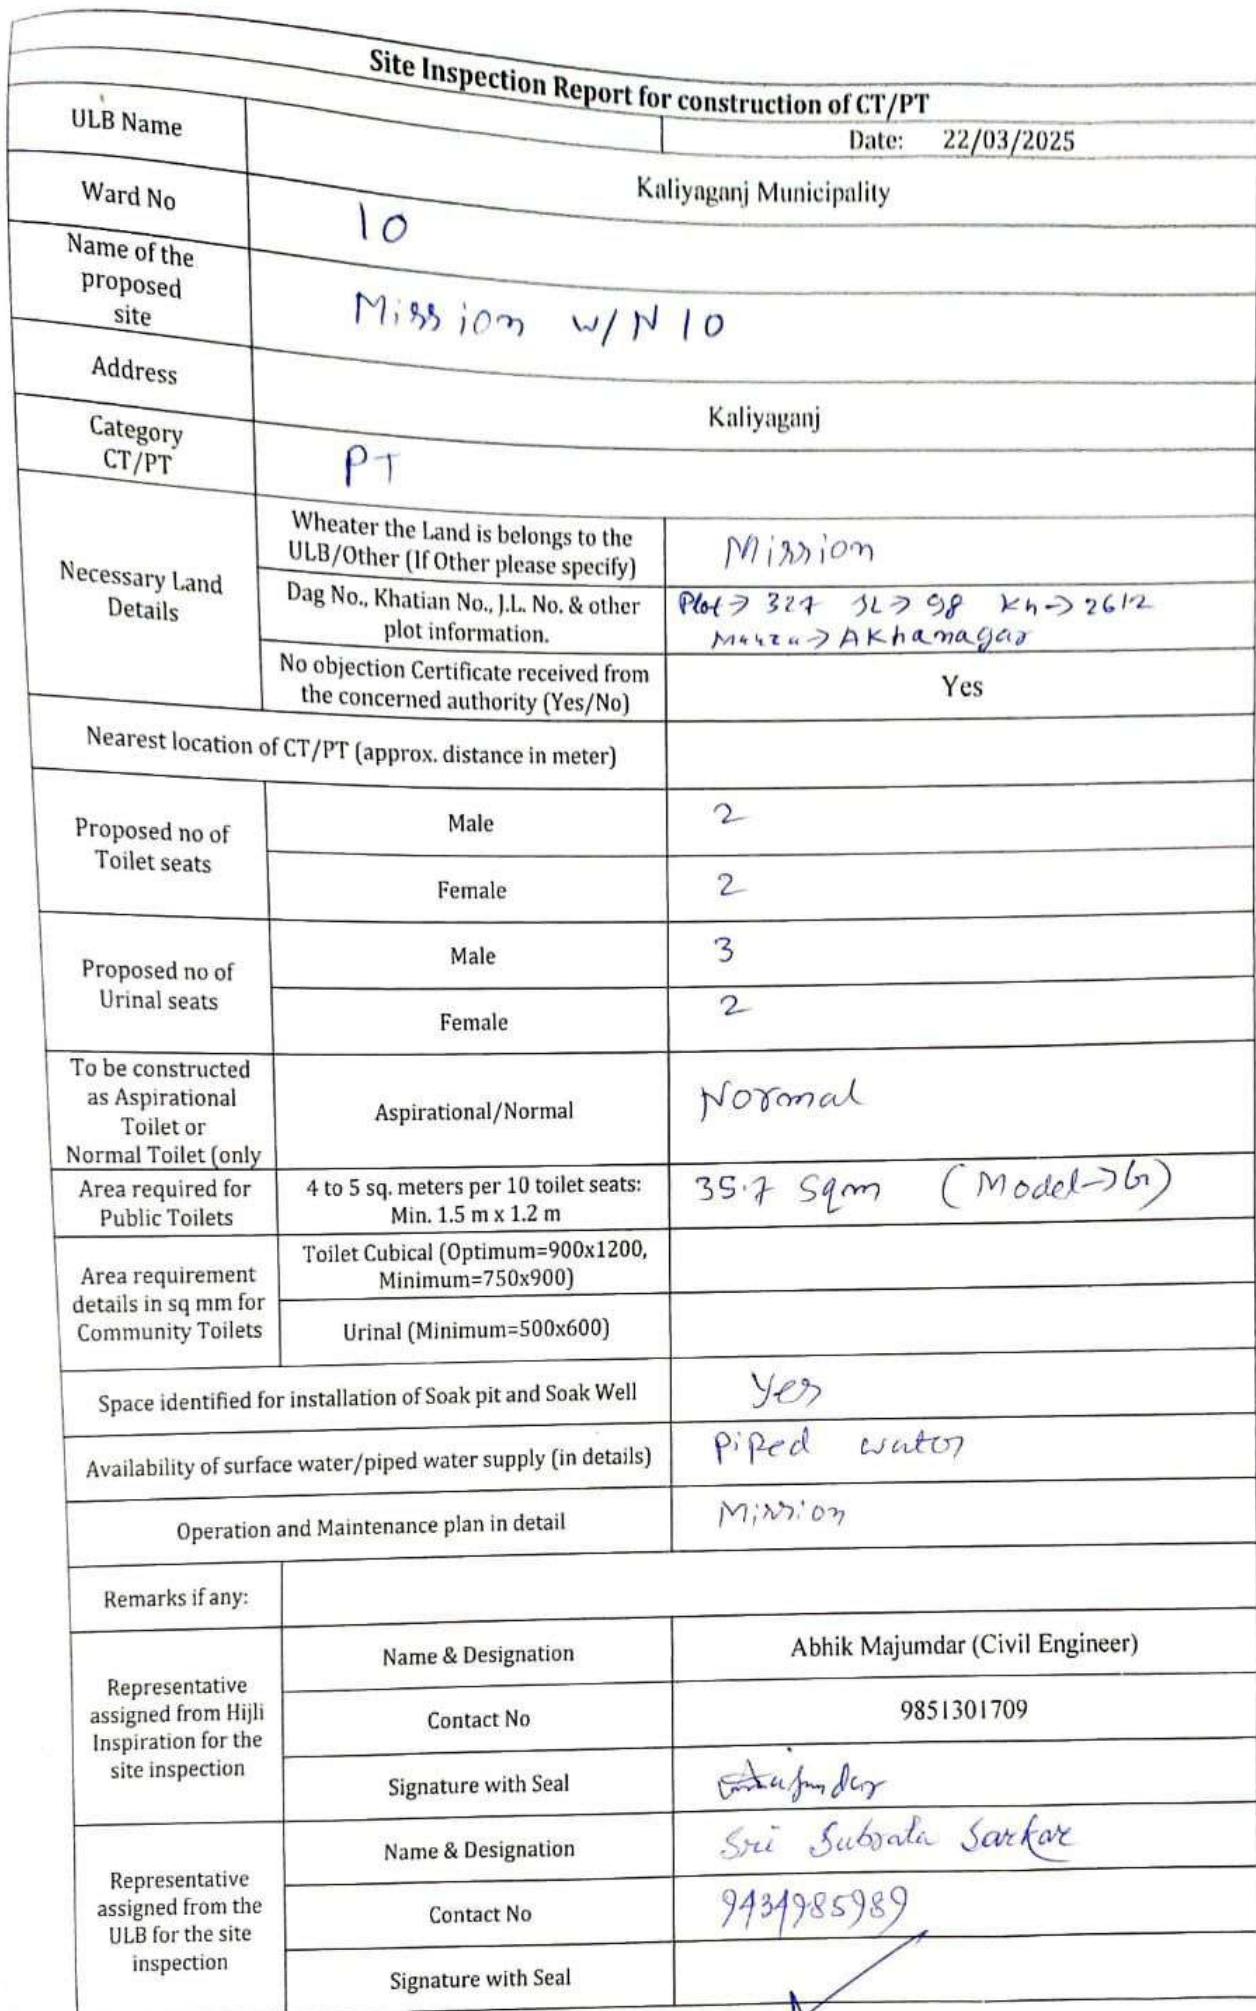 Site Inspection Report for construction of CT/PT
Date: 22/03/2025
ULB Name
Kaliyaganj Municipality
Ward No
10
Name of the
proposed
site
Mission W/N 10
Address
Kaliyaganj
Category
CT/PT
PT
Necessary Land
Details
Wheater the Land is belongs to the
ULB/Other (If Other please specify)
Mission
Dag No., Khatian No., J.L. No. & other
plot information.
Plot→ 327 JL→ 98 Kh→ 2612
Mauza→ AKhanagar
No objection Certificate received from
the concerned authority (Yes/No)
Yes
Nearest location of CT/PT (approx. distance in meter)
Proposed no of
Toilet seats
Male
2
Female
2
Proposed no of
Urinal seats
Male
3
Female
2
To be constructed
as Aspirational
Toilet or
Normal Toilet (only
Aspirational/Normal
Normal
Area required for
Public Toilets
4 to 5 sq. meters per 10 toilet seats:
Min. 1.5 m x 1.2 m
35.7 Sqm (Model→G)
Area requirement
details in sq mm for
Community Toilets
Toilet Cubical (Optimum=900x1200,
Minimum=750x900)
Urinal (Minimum=500x600)
Space identified for installation of Soak pit and Soak Well
Yes
Availability of surface water/piped water supply (in details)
Piped water
Operation and Maintenance plan in detail
Mission
Remarks if any:
Representative
assigned from Hijli
Inspiration for the
site inspection
Name & Designation
Abhik Majumdar (Civil Engineer)
Contact No
9851301709
Signature with Seal
Representative
assigned from the
ULB for the site
inspection
Name & Designation
Sri Subrata Sarkar
Contact No
9434985989
Signature with Seal